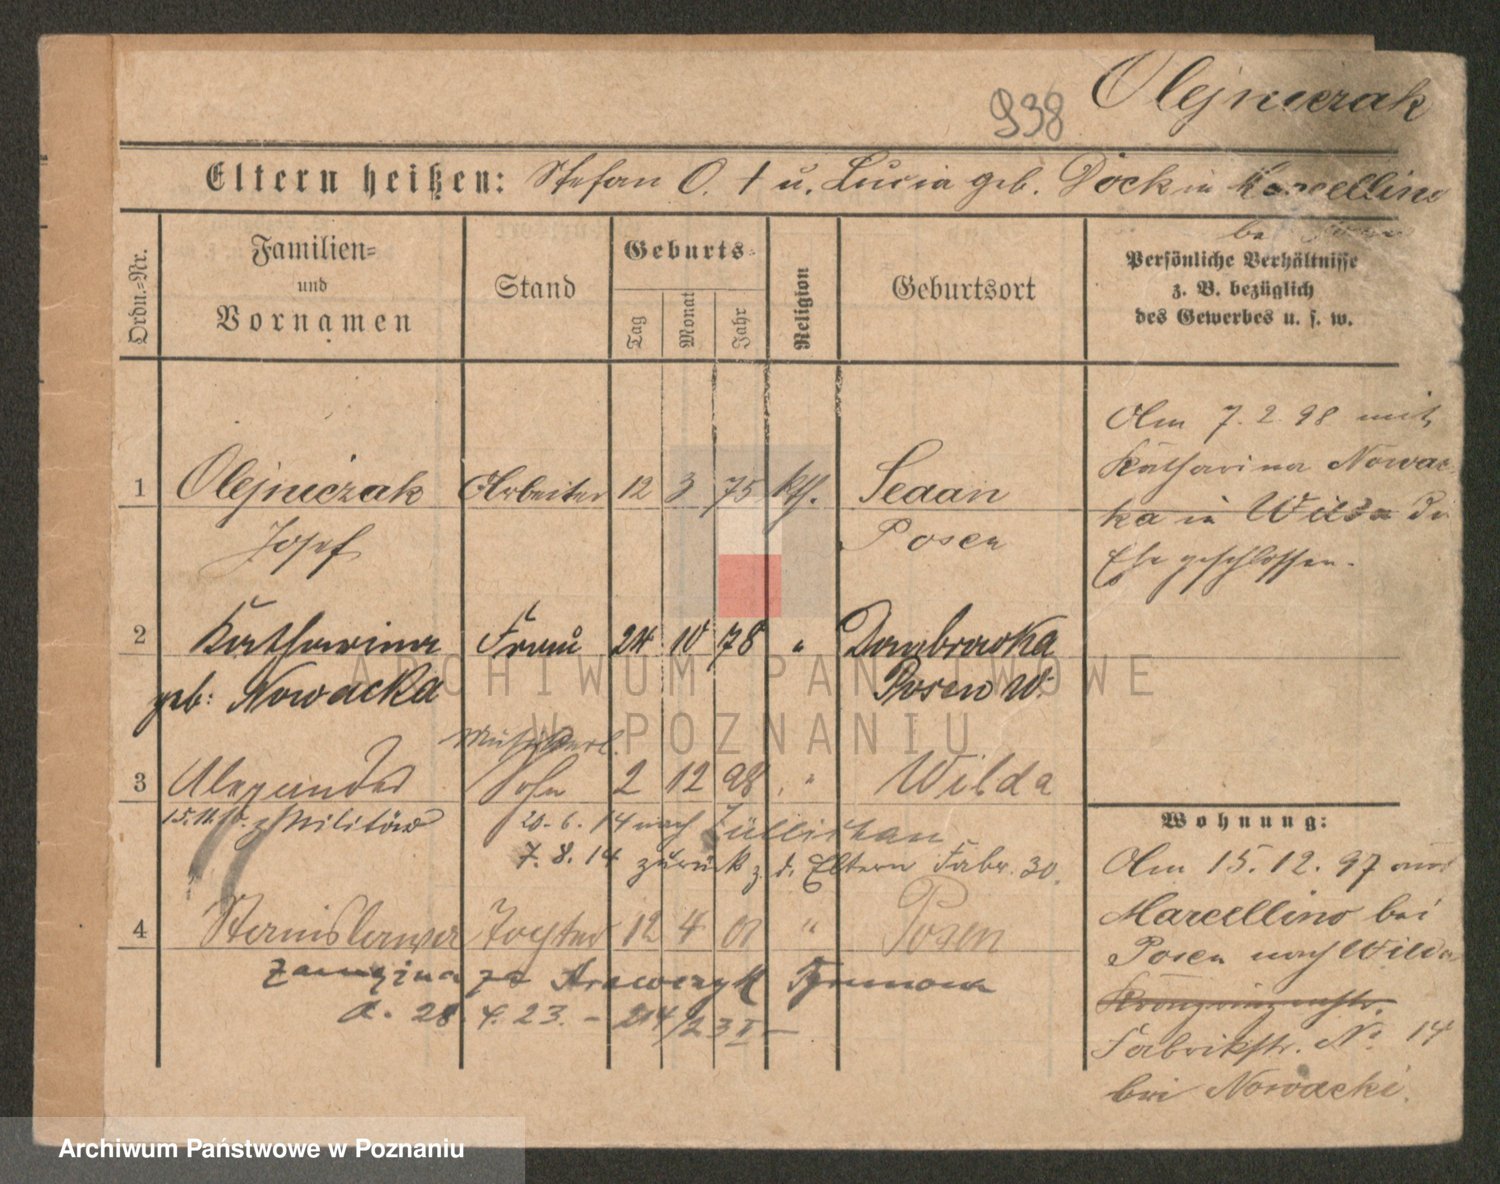 Olejniczak
938
Eltern heißen: Stefan O. † u. Lucia geb. Dock in Marcellino
bei Posen
Ordn.-Nr.
Familien-
und
Vornamen
Stand
Geburts-
Tag
Monat
Jahr
Religion
Geburtsort
Persönliche Verhältnisse
z. B. bezüglich
des Gewerbes u. s. w.
1 Olejniczak Arbeiter 12 3 75 kth. Sedan
Josef Posen
Am 7. 2. 98 mit
Katharina Nowac-
ka in Wilda die
Ehe geschlossen.
2 Katharina Frau 24 10 78 " Dombrowka
geb: Nowacka Posen W.
3 Alexander Sohn 2 12 98 " Wilda
z Militär 20. 6. 14 nach Züllichau
7. 8. 14 zurück z. d. Eltern Fabr. 30.
4 Stanislawa Tochter 12 4 01 " Posen
za
d. 28. 4. 23. - 214/23 II -
Wohnung:
Am 15. 12. 97 aus
Marcellino bei
Posen nach Wilda
Kronprinzenstr.
Fabrikstr. No 14
bei Nowacki.
ARCHIWUM PAŃSTWOWE
W POZNANIU
Archiwum Państwowe w Poznaniu